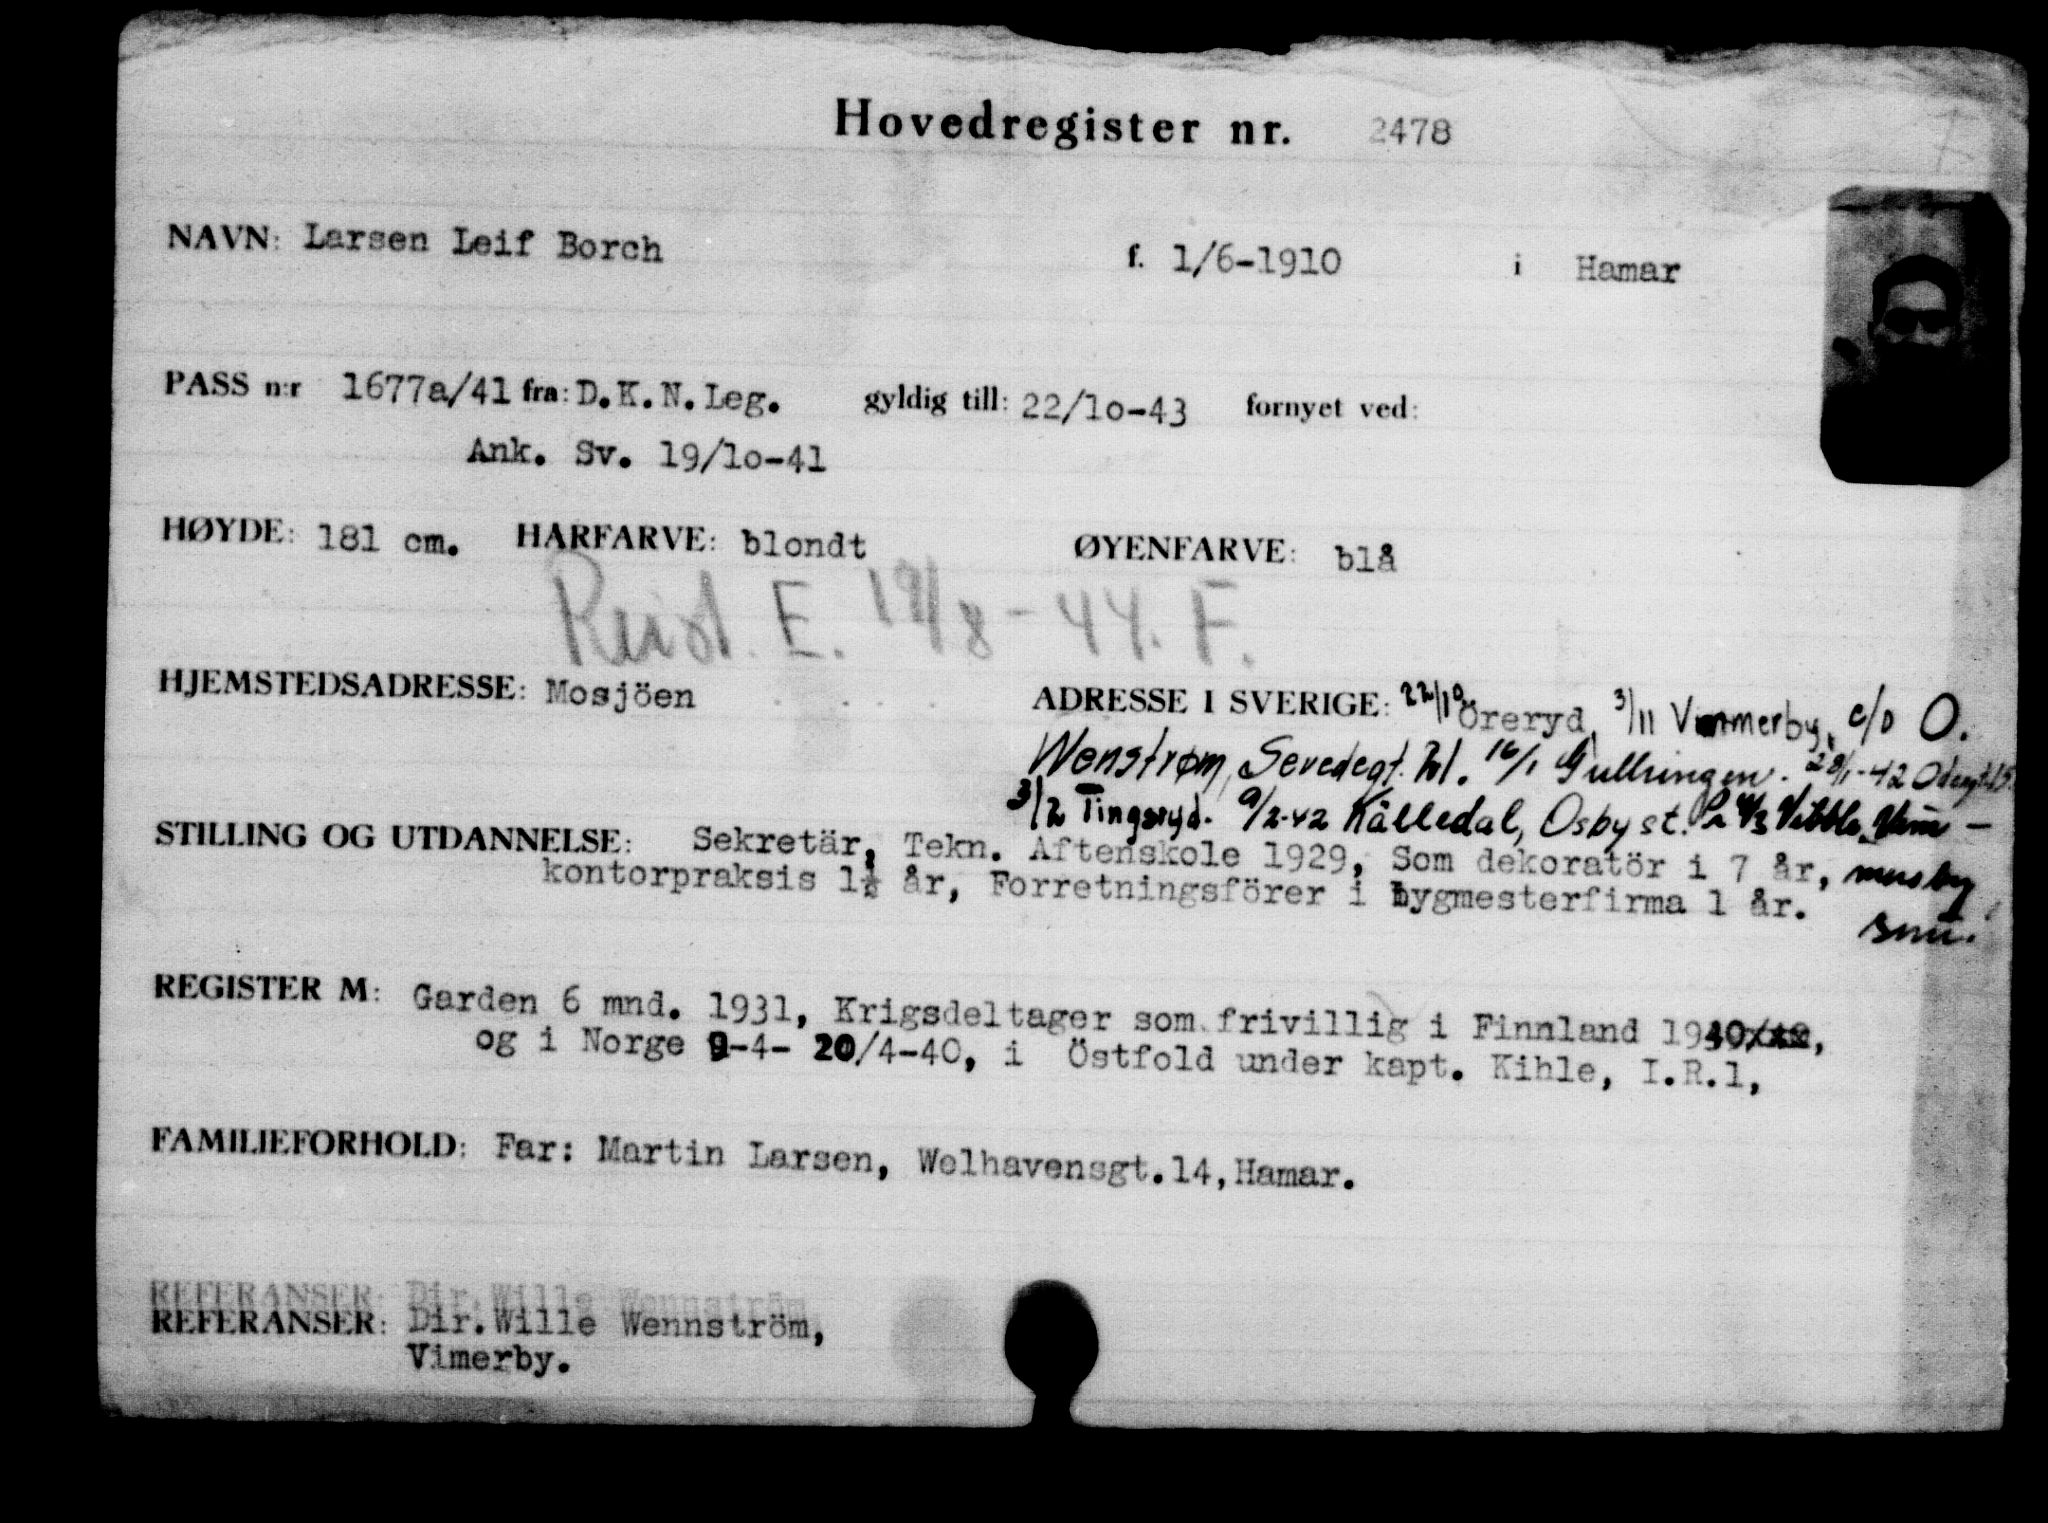 Hovedregister nr. 2478
NAVN: Larsen Leif Borch f. 1/6-1910 i Hamar
PASS n:r 1677a/41 fra: D.K.N.Leg. gyldig till: 22/lo-43 fornyet ved:
Ank. Sv. 19/lo-41
HØYDE: 181 cm. HÅRFARVE: blondt ØYENFARVE: blå
Reist E. 19/8-44. F.
HJEMSTEDSADRESSE: Mosjöen ADRESSE I SVERIGE: 22/10 Öreryd, 3/11 Vimmerby, c/o O.
Wenstrøm, Sevedegt. 16/1 Gullringen. 28/1-42
3/2 Tingsryd. 9/2-42 Källedal, Osby st.
STILLING OG UTDANNELSE: Sekretär, Tekn. Aftenskole 1929, Som dekoratör i 7 år,
kontorpraksis 1½ år, Forretningsförer i bygmesterfirma 1 år.
REGISTER M: Garden 6 mnd. 1931, Krigsdeltager som frivillig i Finnland 1940,
og i Norge 9-4- 20/4-40, i Östfold under kapt. Kihle, I.R.1,
FAMILIEFORHOLD: Far: Martin Larsen, Welhavensgt.14, Hamar.
REFERANSER: Dir. Wille Wennström,
REFERANSER: Dir. Wille Wennström,
Vimerby.